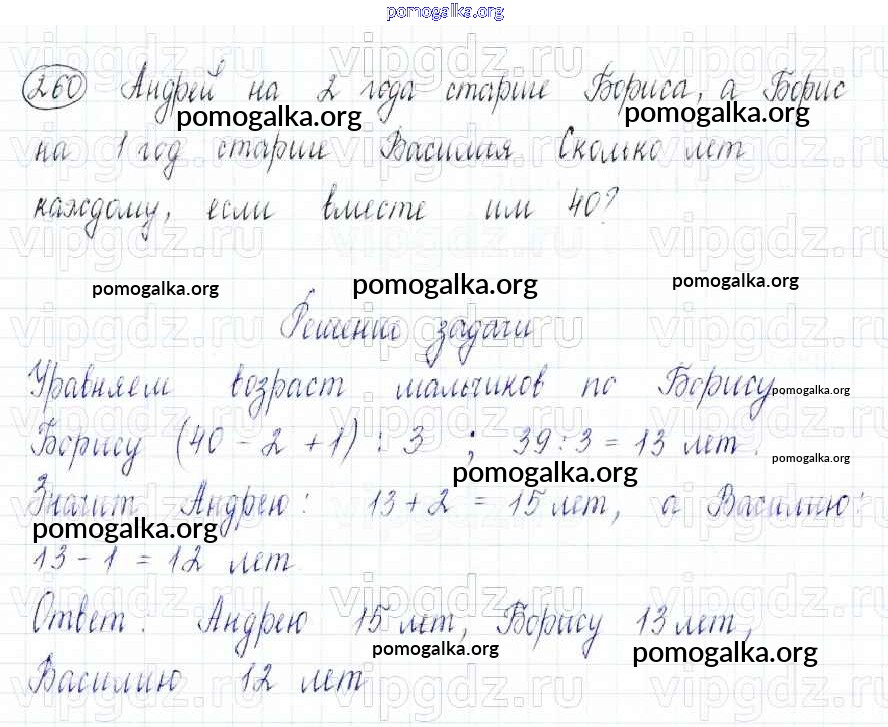 pomogalka.org
260 Андрей на 2 года старше Бориса, а Борис
pomogalka.org pomogalka.org
на 1 год старше Василия Сколько лет
каждому, если вместе им 40?
pomogalka.org pomogalka.org pomogalka.org
Решение задачи
Уравняем возраст мальчиков по Борису
pomogalka.org
Борису (40 - 2 + 1) : 3 ; 39 : 3 = 13 лет.
pomogalka.org pomogalka.org
Значит Андрею: 13 + 2 = 15 лет, а Василию:
pomogalka.org
13 - 1 = 12 лет
Ответ: Андрею 15 лет, Борису 13 лет,
pomogalka.org pomogalka.org
Василию 12 лет
vipgdz.ru